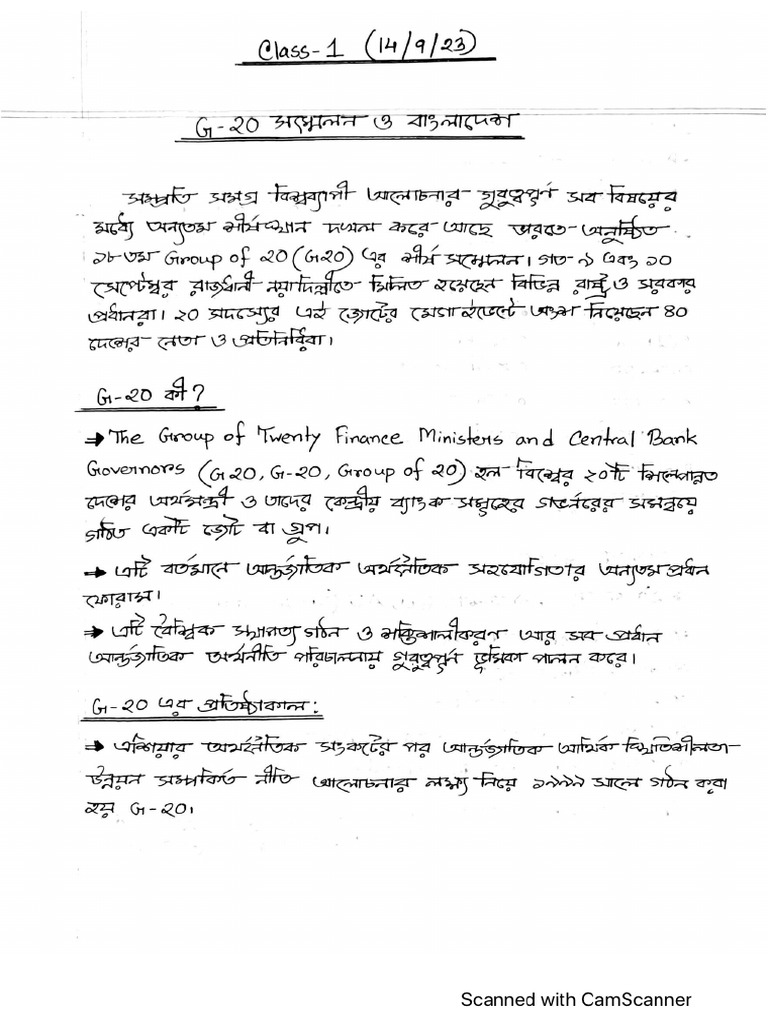 Class-1 (14/9/23)
G-20 সম্মেলন ও বাংলাদেশ
সম্প্রতি সমগ্র বিশ্বব্যাপী আলোচনার গুরুত্বপূর্ণ সব বিষয়ের
মধ্যে অন্যতম শীর্ষস্থান দখল করে আছে ভারতে অনুষ্ঠিত
১৮তম Group of 20 (G20) এর শীর্ষ সম্মেলন। গত ৯ এবং ১০
সেপ্টেম্বর রাজধানী নয়াদিল্লীতে মিলিত হয়েছেন বিভিন্ন রাষ্ট্র ও সরকার
প্রধানরা। ২০ সদস্যের এই জোটের মেগা ইভেন্টে অংশ নিয়েছেন ৪০
দেশের নেতা ও প্রতিনিধিরা।
G-20 কী?
→ The Group of Twenty Finance Ministers and Central Bank
Governors (G20, G-20, Group of 20) হল বিশ্বের ২০টি শিল্পোন্নত
দেশের অর্থমন্ত্রী ও তাদের কেন্দ্রীয় ব্যাংক সমূহের গভর্নরের সমন্বয়ে
গঠিত একটি জোট বা গ্রুপ।
→ এটি বর্তমানে আন্তর্জাতিক অর্থনৈতিক সহযোগিতার অন্যতম প্রধান
ফোরাম।
→ এটি বৈশ্বিক স্থাপত্য গঠন ও শক্তিশালীকরণ আর সব প্রধান
আন্তর্জাতিক অর্থনীতি পরিচালনায় গুরুত্বপূর্ণ ভূমিকা পালন করে।
G-20 এর প্রতিষ্ঠাকাল:
→ এশিয়ার অর্থনৈতিক সংকটের পর আন্তর্জাতিক আর্থিক স্থিতিশীলতা
উন্নয়ন সম্পর্কিত নীতি আলোচনার লক্ষ্য নিয়ে ১৯৯৯ সালে গঠন করা
হয় G-20।
Scanned with CamScanner